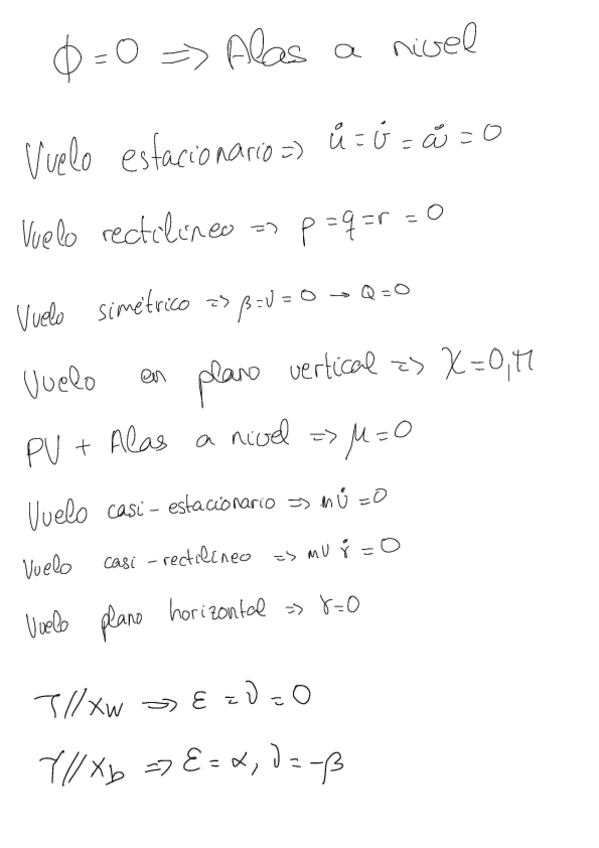 ϕ = 0 => Alas a nivel
Vuelo estacionario => u̇ = v̇ = ẇ = 0
Vuelo rectilíneo => p = q = r = 0
Vuelo simétrico => β = υ = 0 → Q = 0
Vuelo en plano vertical => χ = 0, π
PV + Alas a nivel => μ = 0
Vuelo casi-estacionario => m v̇ = 0
Vuelo casi-rectilíneo => m v γ̇ = 0
Vuelo plano horizontal => γ = 0
T // Xw => ε = ν = 0
T // Xb => ε = α, ν = -β